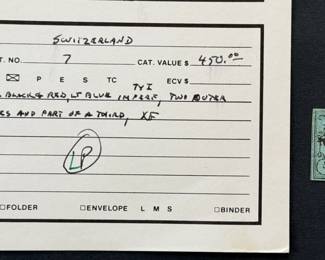 SWITZERLAND
T. NO. 7 CAT. VALUE $ 450.00
☒ P E S TC ECV $
TYI
BLACK & RED, LT BLUE IMPERF, TWO OUTER
ES AND PART OF A THIRD, XF
LP
☐FOLDER ☐ENVELOPE L M S ☐BINDER